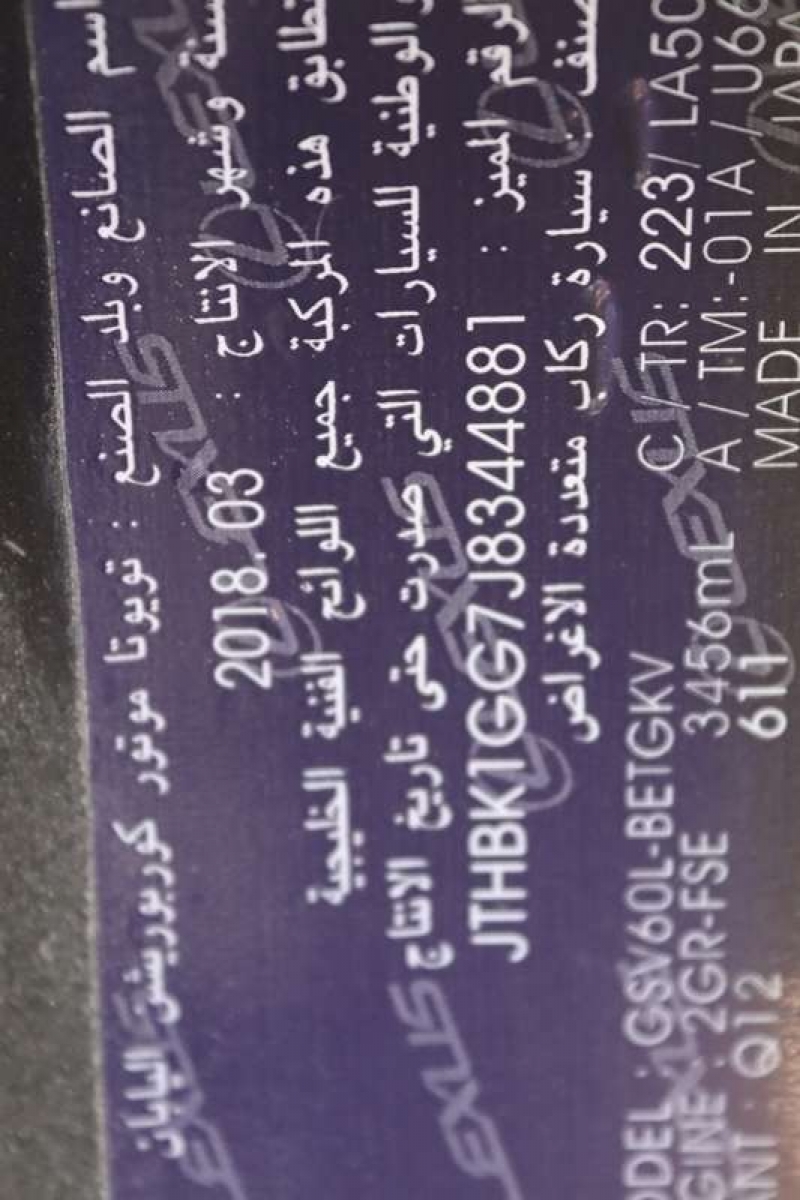 اسم الصانع وبلد الصنع : تويوتا موتور كوربوريشن اليابان
سنة وشهر الانتاج : 2018. 03
تطابق هذه المركبة جميع اللوائح الفنية الخليجية
الوطنية للسيارات التي صدرت حتى تاريخ الانتاج
الرقم المميز : JTHBK1GG7J8344881
صنف : سيارة ركاب متعددة الاغراض
C / TR: 223 / LA50
MODEL : GSV60L-BETGKV
A / TM:-01A / U66
ENGINE : 2GR-FSE 3456mL
MADE IN JAPA
NT : Q12 611
LEXUS
LEXUS
LEXUS
LEXUS
LEXUS